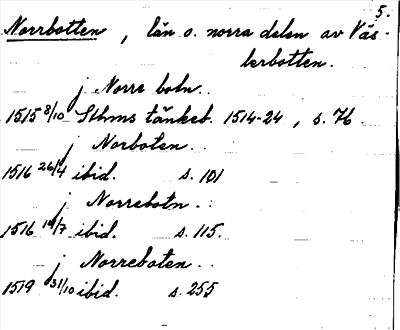 5.
Norrbotten, län o. norra delen av Väs-
terbotten.
j Norre botn..
1515 8/10 Sthms tänkeb. 1514-24, s. 76
j Norboten..
1516 26/4 ibid. s. 101
j Norrebotn..
1516 14/7 ibid. s. 115.
j Norreboten..
1519 31/10 ibid. s. 255